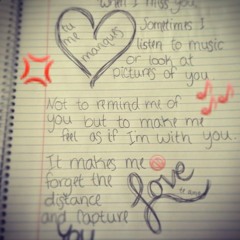 When I miss you
tu
me
manques
Sometimes I
listen to music
or look at
pictures of you
Not to remind me of
you but to make me
feel as if I'm with you.
It makes me
forget the
distance
and capture
Love
You